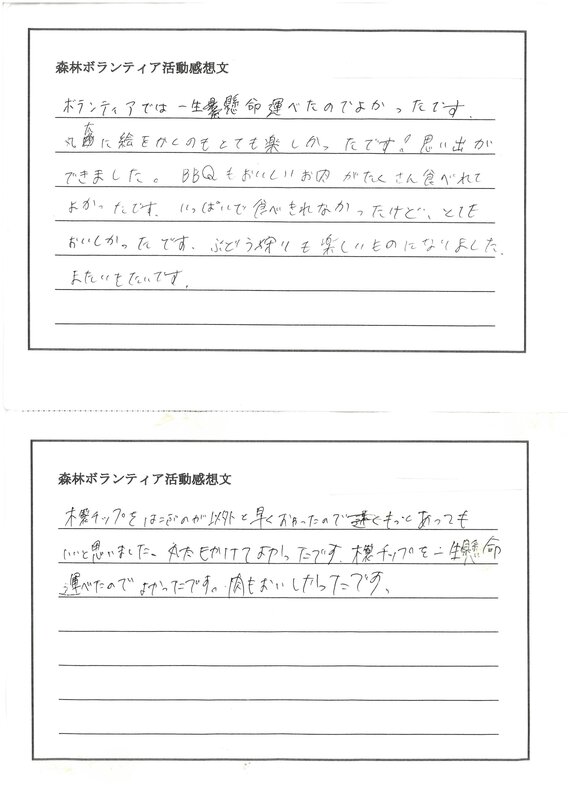 森林ボランティア活動感想文
ボランティアでは一生懸命運べたのでよかったです。
丸太に絵をかくのもとても楽しかったです!思い出が
できました。BBQもおいしいお肉がたくさん食べれて
よかったです。いっぱいで食べきれなかったけど、とても
おいしかったです。ぶどう狩りも楽しいものになりました。
またいきたいです。
森林ボランティア活動感想文
木製チップをはこぶのが以外と早くおわったのでもっとあっても
いいと思いました。丸太もかけてよかったです。木製チップを一生懸命
運べたのでよかったです。肉もおいしかったです。